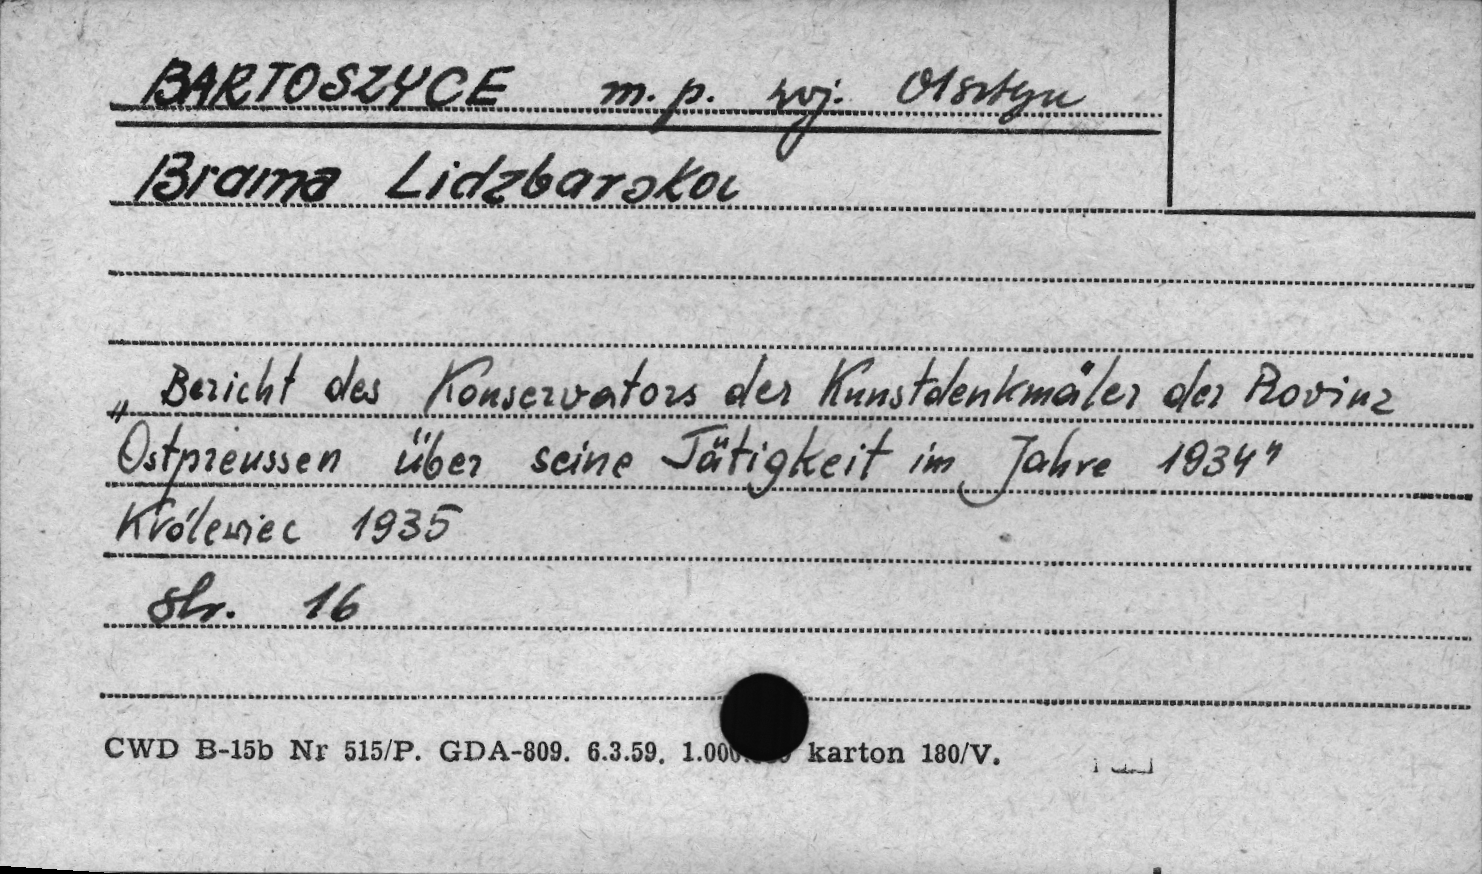 BARTOSZYCE m. p. woj. Olsztyn
Brama Lidzbarska
„Bericht des Konservators der Kunstdenkmäler der Provinz
Ostpreussen über seine Tätigkeit im Jahre 1934"
Królewiec 1935
str. 16
CWD B-15b Nr 515/P. GDA-809. 6.3.59. karton 180/V.